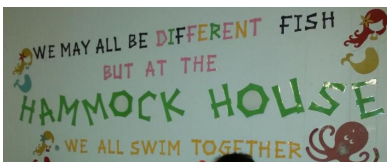 WE MAY ALL BE DIFFERENT FISH
BUT AT THE
HAMMOCK HOUSE
WE ALL SWIM TOGETHER